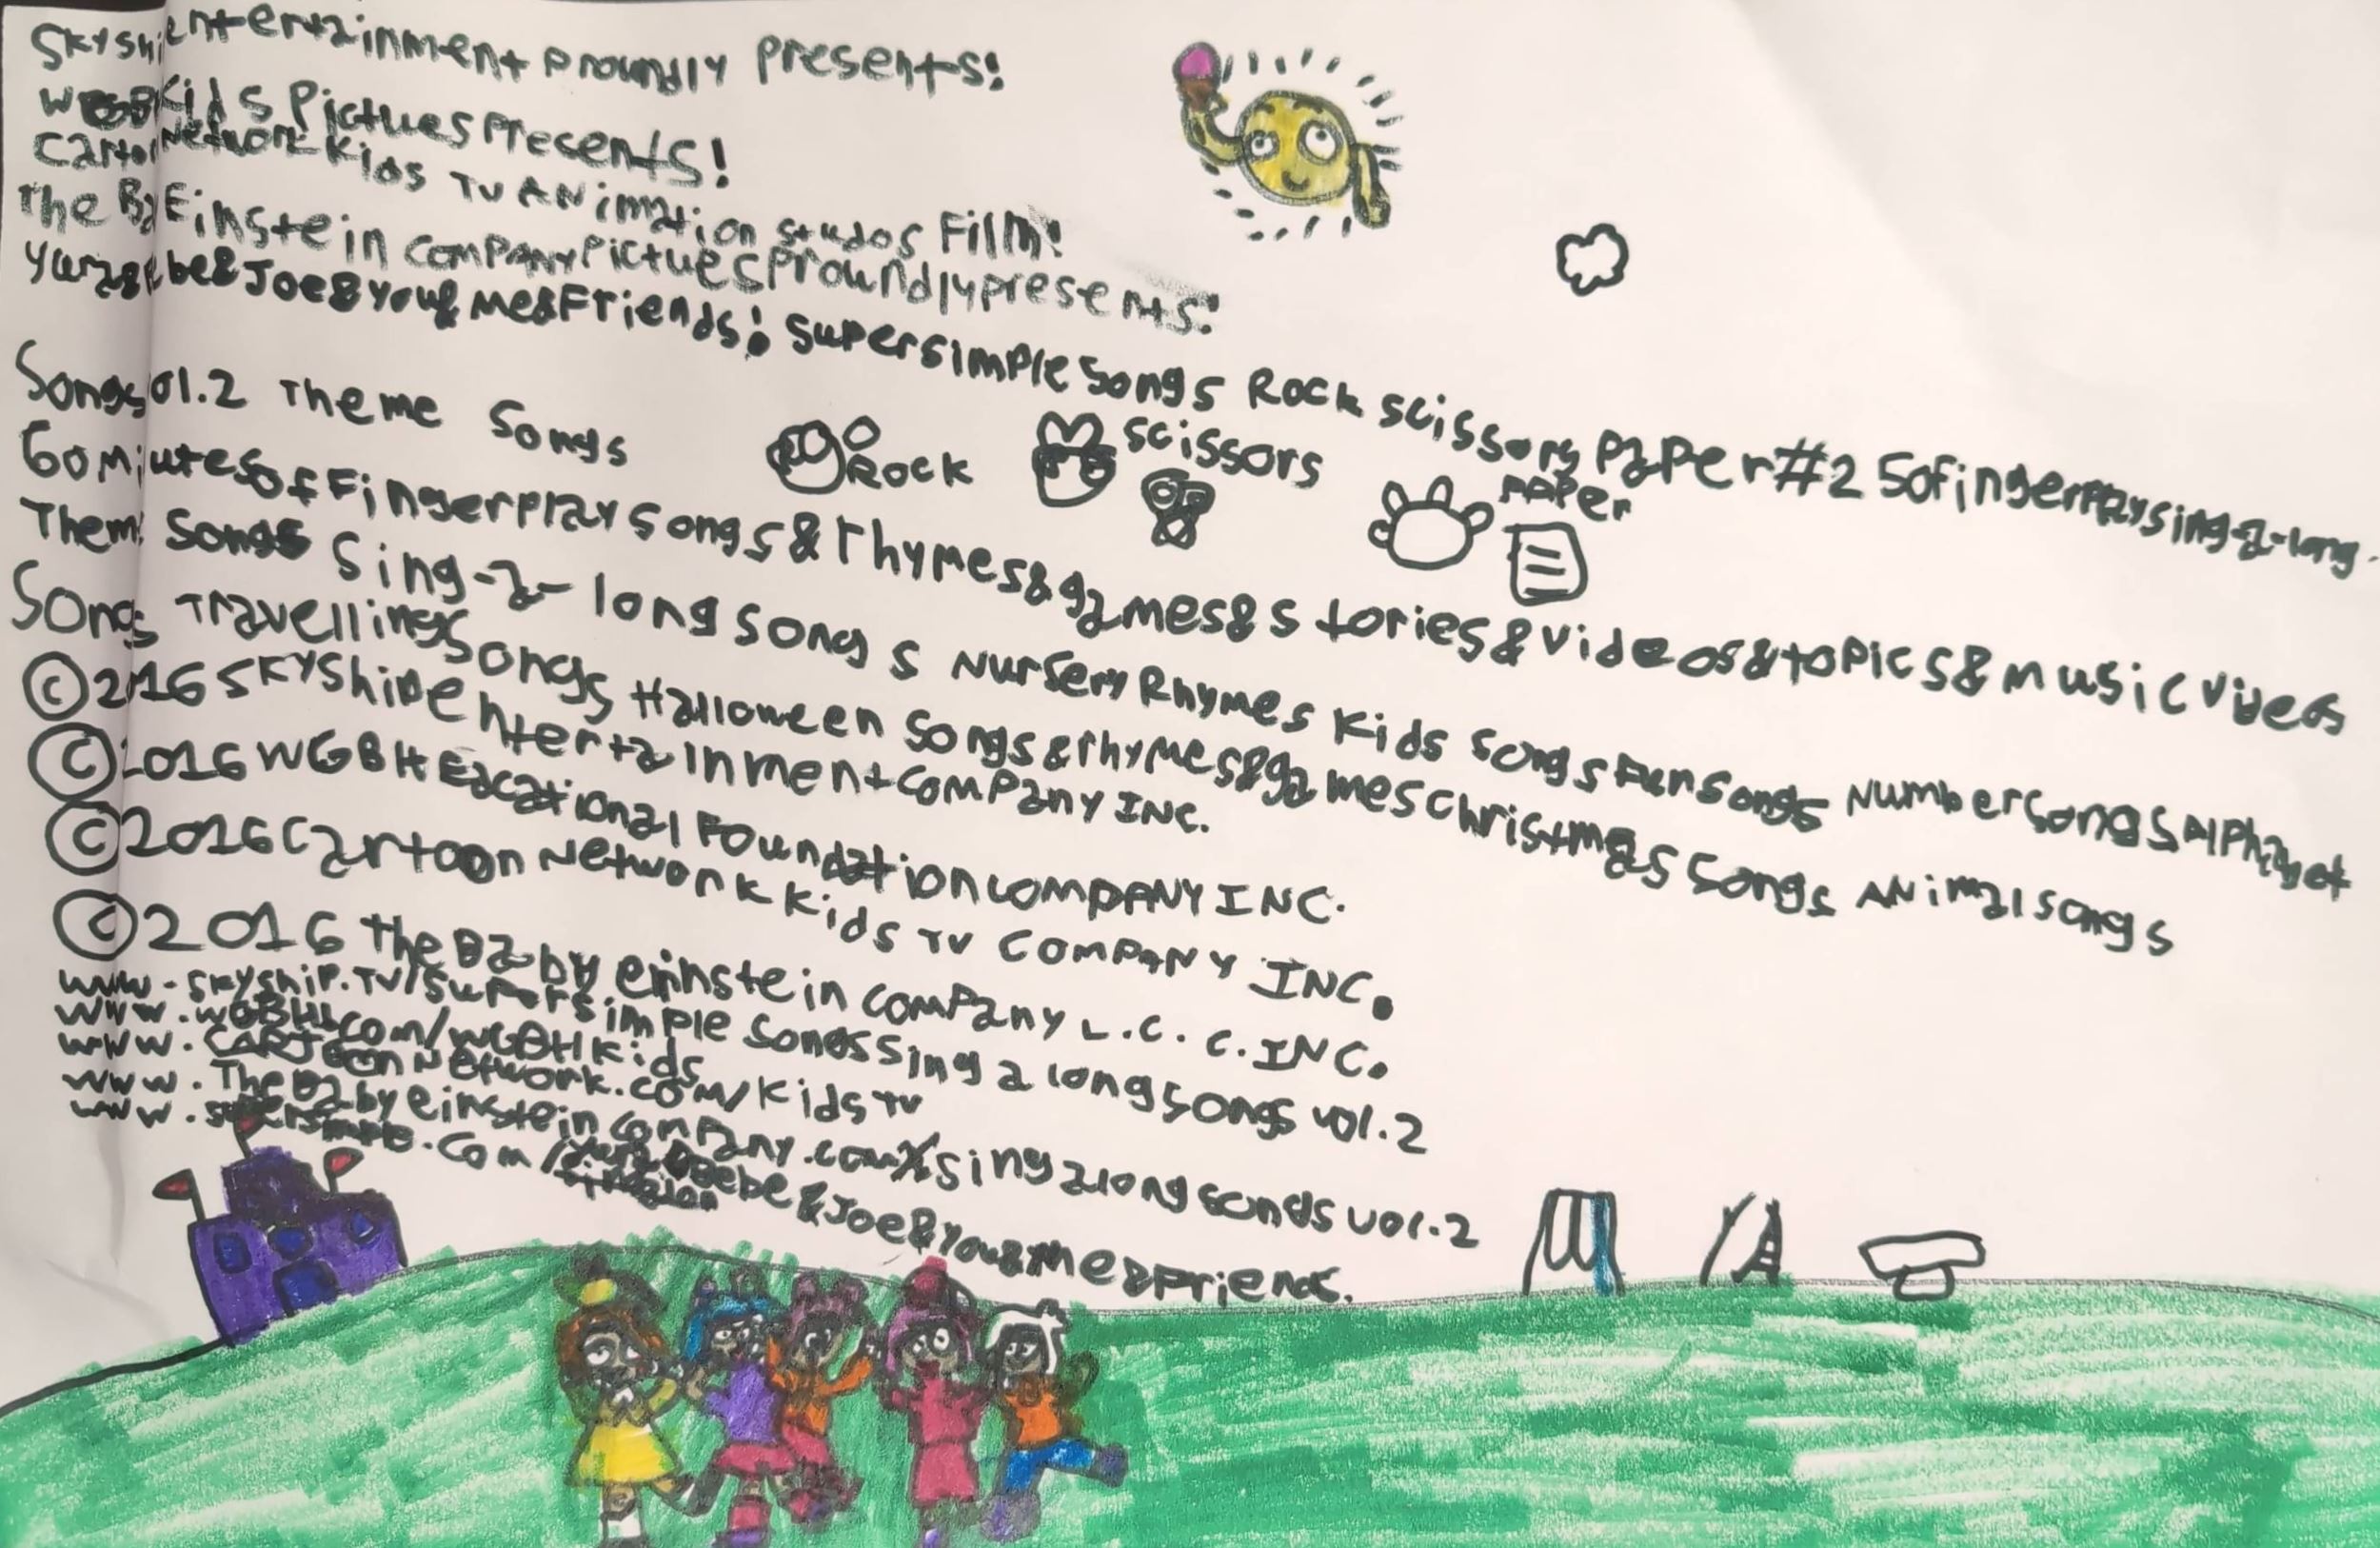 Skyshi entertainment proundly presents!
WGBH Kids Pictues Presents!
Carto Network Kids TV ANimation studos Film!
The Ba Einstein company Pictues proundly presents!
& Joe & you & me & Friends! super simple songs Rock scissors paper #2 50 finger play sing-a-long
Songs vol.2 Theme Songs
ROCK
scissors
PAPer
60 miutes of Finger play songs & rhymes & games & stories & videos & topics & music videos
Them Songs Sing-a-long songs Nursery Rhymes Kids songs Fun songs Number songs Alphabet
Songs Travelling songs Halloween songs & rhymes & games christmas songs ANimal songs
©2016 Skyship entertainment company INC.
©2016 WGBH Eacational Foundation COMPANY INC.
©2016 Cartoon Network Kids TV COMPANY INC.
©2016 the Baby einstein company L.C.C. INC.
www.skyship.TV/super simple songs sing a long songs vol.2
www.WGBH.com/WGBHKids
www.CARTOON Network.com/Kids TV
www.The Baby einstein company.com/sing a long songs vol.2
www.supersimple.com/ & Joe & You & Me & Friends.